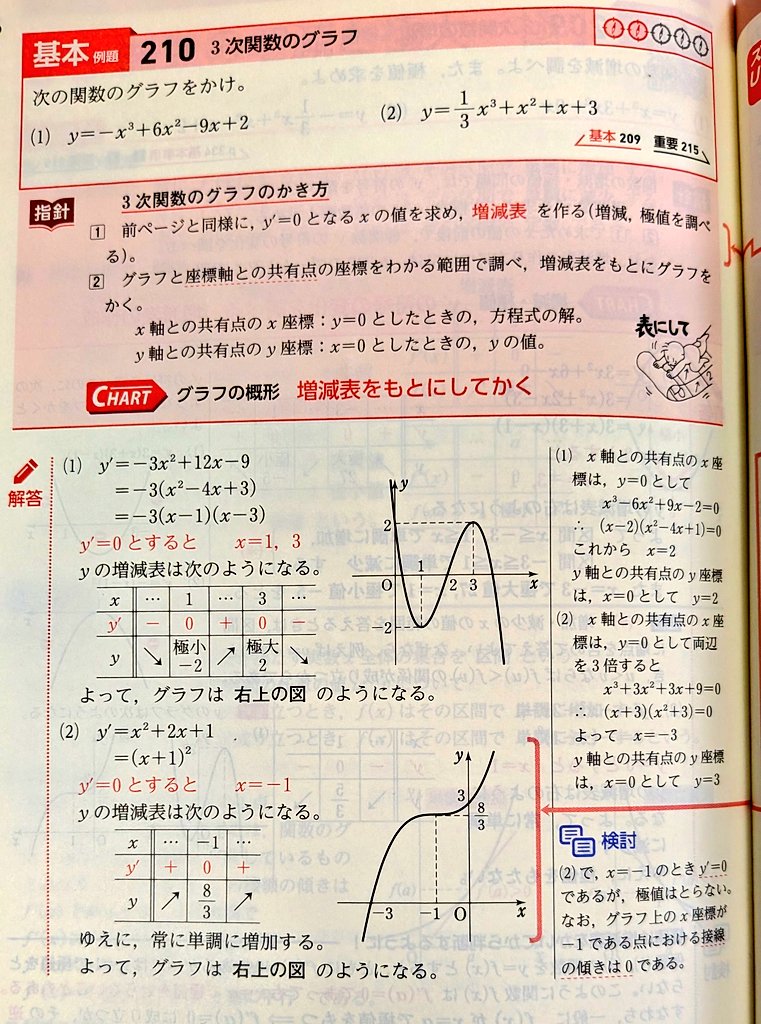 基本 例題 210 3次関数のグラフ
次の関数のグラフをかけ。
(1) y=−x³+6x²−9x+2
(2) y=1/3 x³+x²+x+3
基本 209 重要 215
指針
3次関数のグラフのかき方
1 前ページと同様に，y′=0 となる x の値を求め，増減表 を作る(増減，極値を調べ
る)。
2 グラフと座標軸との共有点の座標をわかる範囲で調べ，増減表をもとにグラフを
かく。
x 軸との共有点の x 座標：y=0 としたときの，方程式の解。
y 軸との共有点の y 座標：x=0 としたときの，y の値。
表にして
CHART グラフの概形 増減表をもとにしてかく
解答
(1) y′=−3x²+12x−9
=−3(x²−4x+3)
=−3(x−1)(x−3)
y′=0 とすると x=1, 3
y の増減表は次のようになる。
x … 1 … 3 …
y′ − 0 + 0 −
y ↘ 極小 −2 ↗ 極大 2 ↘
y
2
O 1 2 3 x
−2
よって，グラフは 右上の図 のようになる。
(2) y′=x²+2x+1
=(x+1)²
y′=0 とすると x=−1
y の増減表は次のようになる。
x … −1 …
y′ + 0 +
y ↗ 8/3 ↗
y
3
8/3
−3 −1 O x
ゆえに，常に単調に増加する。
よって，グラフは 右上の図 のようになる。
(1) x 軸との共有点の x 座
標は，y=0 として
x³−6x²+9x−2=0
∴ (x−2)(x²−4x+1)=0
これから x=2
y 軸との共有点の y 座標
は，x=0 として y=2
(2) x 軸との共有点の x 座
標は，y=0 として両辺
を 3 倍すると
x³+3x²+3x+9=0
∴ (x+3)(x²+3)=0
よって x=−3
y 軸との共有点の y 座標
は，x=0 として y=3
検討
(2) で，x=−1 のとき y′=0
であるが，極値はとらない。
なお，グラフ上の x 座標が
−1 である点における接線
の傾きは 0 である。